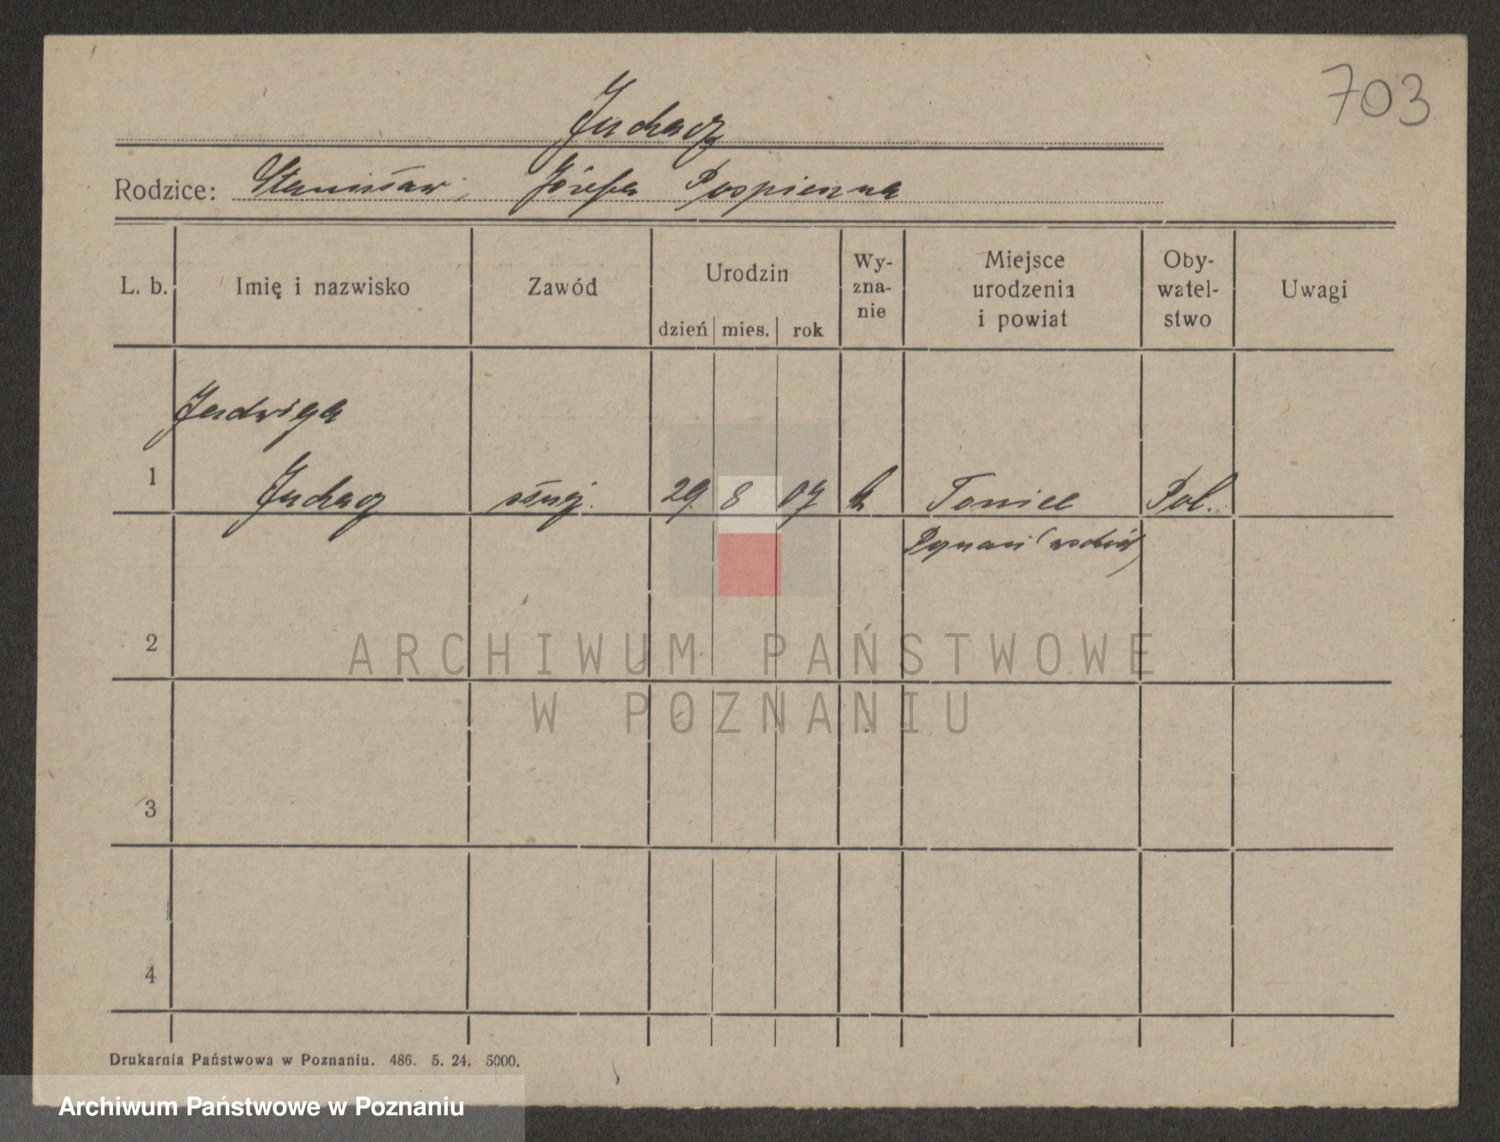 703
Juchacz
Rodzice: Stanisław, Józefa Pospieszna
L. b. Imię i nazwisko Zawód Urodzin dzień mies. rok Wy-zna-nie Miejsce urodzenia i powiat Oby-watel-stwo Uwagi
Jadwiga
1 Juchacz służ. 29 8 07 k Pol.
Poznań wschód
2
ARCHIWUM PAŃSTWOWE
W POZNANIU
3
4
Drukarnia Państwowa w Poznaniu. 486. 5. 24. 5000.
Archiwum Państwowe w Poznaniu